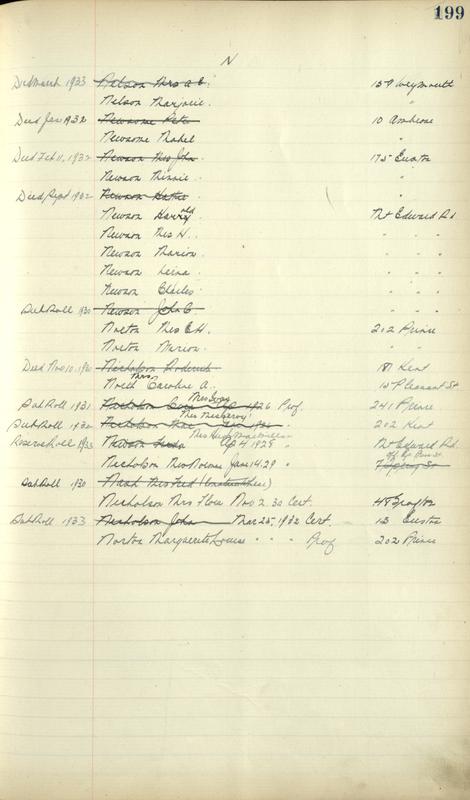 199
N
Died March 1933 Nelson Mrs A C. 159 Weymouth
Nelson Marjorie. "
Died Jan 1932 Newsome Peter 10 Ambrose
Newsome Mabel "
Died Feb 11, 1932 Newson Mrs John. 175 Euston
Newson Minnie. "
Died Sept 1932 Newson
Newson Harold. Mt Edward Rd
Newson Miss H. " " "
Newson Marion. " " "
Newson Leina. " " "
Newson Charles " " "
Sub Roll 1930 Newson John C " " "
Norton Mrs E. H. 202 Prince
Norton Marion. " "
Died Nov 10. Nicholson Roderick 181 Kent
North Mrs Caroline A. 15 Pleasant St
Sub Roll 1931 Nicholson 1926 Prof. 241 Prince
Sub Roll 1932 Nicholson 202 Kent
Reserve Roll 1933 Newson Ap 4 1928 " Mt Edward Rd.
Nicholson Jan 14.29 "
Sub Roll 1930 Nash Mrs Fred
Nicholson Mrs Flora Nov 2. 30 Cert. 48 Grafton
Sub Roll 1933 Nicholson John Mar 25, 1932 Cert. 13 Euston
Norton Marguerite Louise " " " Prof 202 Prince